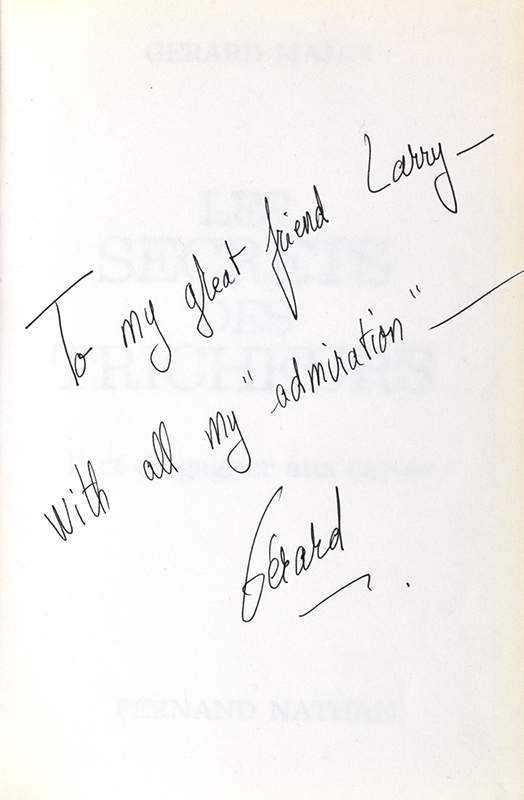 GERARD MAJAX
To my great friend Larry —
LES
SECRETS
DES
TRICHEURS
with all my "admiration" —
Gérard
FERNAND NATHAN